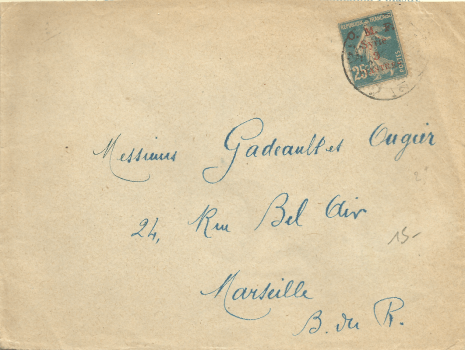 REPUBLIQUE FRANÇAISE
O. M. F.
25
Messieurs Gadeault et Ougier
24, Rue Bel Air
15-
Marseille
B. du R.